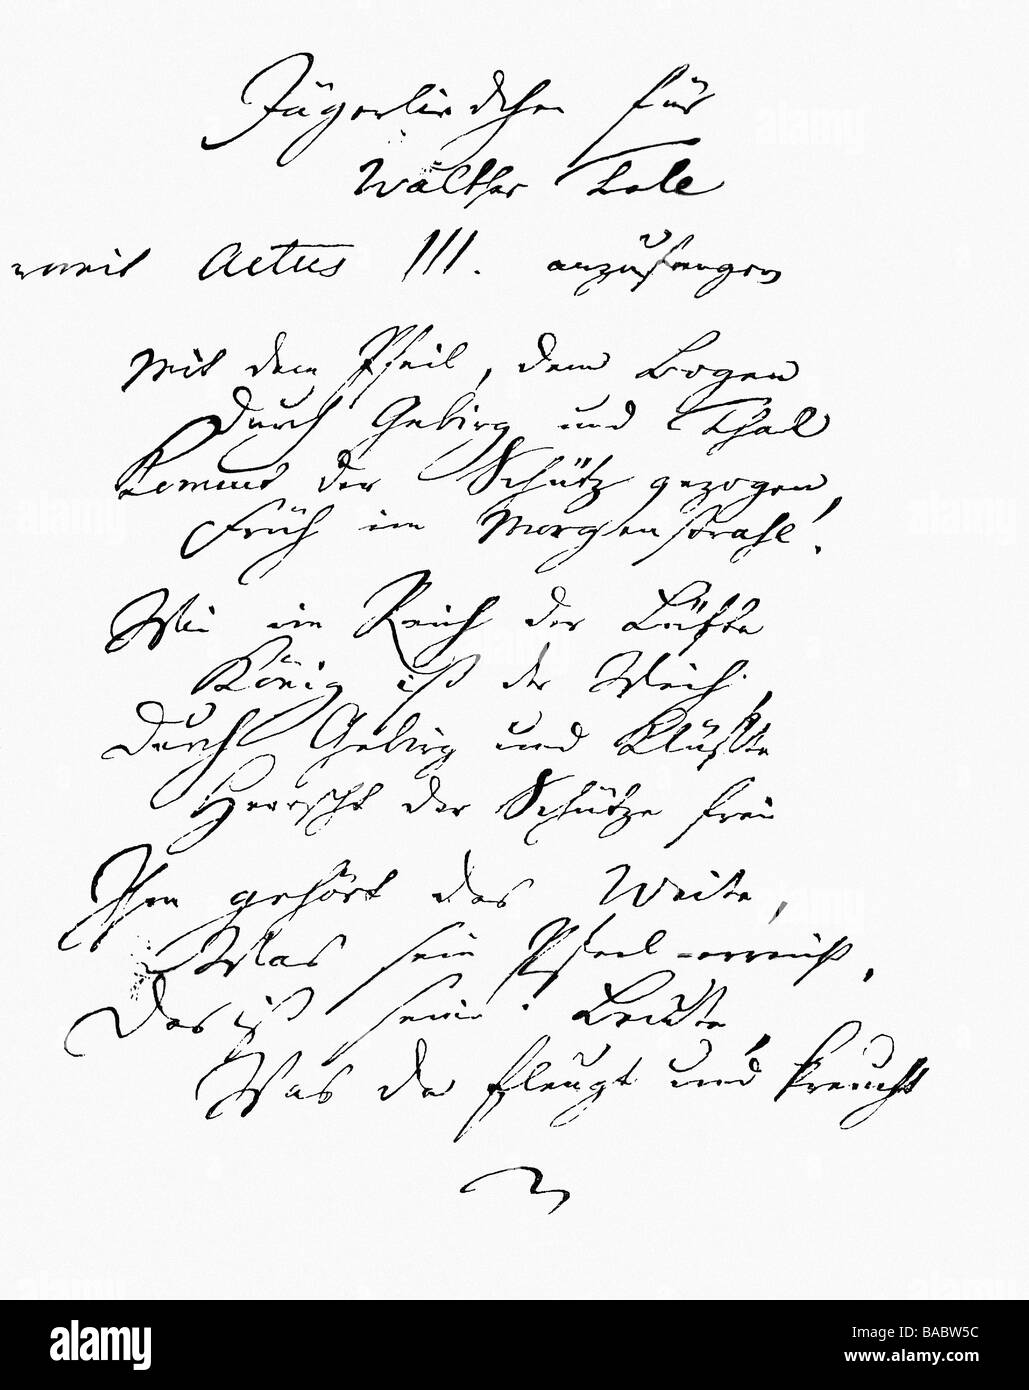 Jägerliedchen für
Walther Tell
womit Actus III. anzufangen
Mit dem Pfeil, dem Bogen
Durch Gebirg und Thal
Kommt der Schütz gezogen,
Früh im Morgenstrahl!
Wie im Reich der Lüfte
König ist der Weih,
Durch Gebirg und Klüfte
Herrscht der Schütze frei
Ihm gehört das Weite,
Was sein Pfeil erreicht,
Das ist seine Beute,
Was da fleugt und kreucht
alamy
Image ID: BABW5C
www.alamy.com